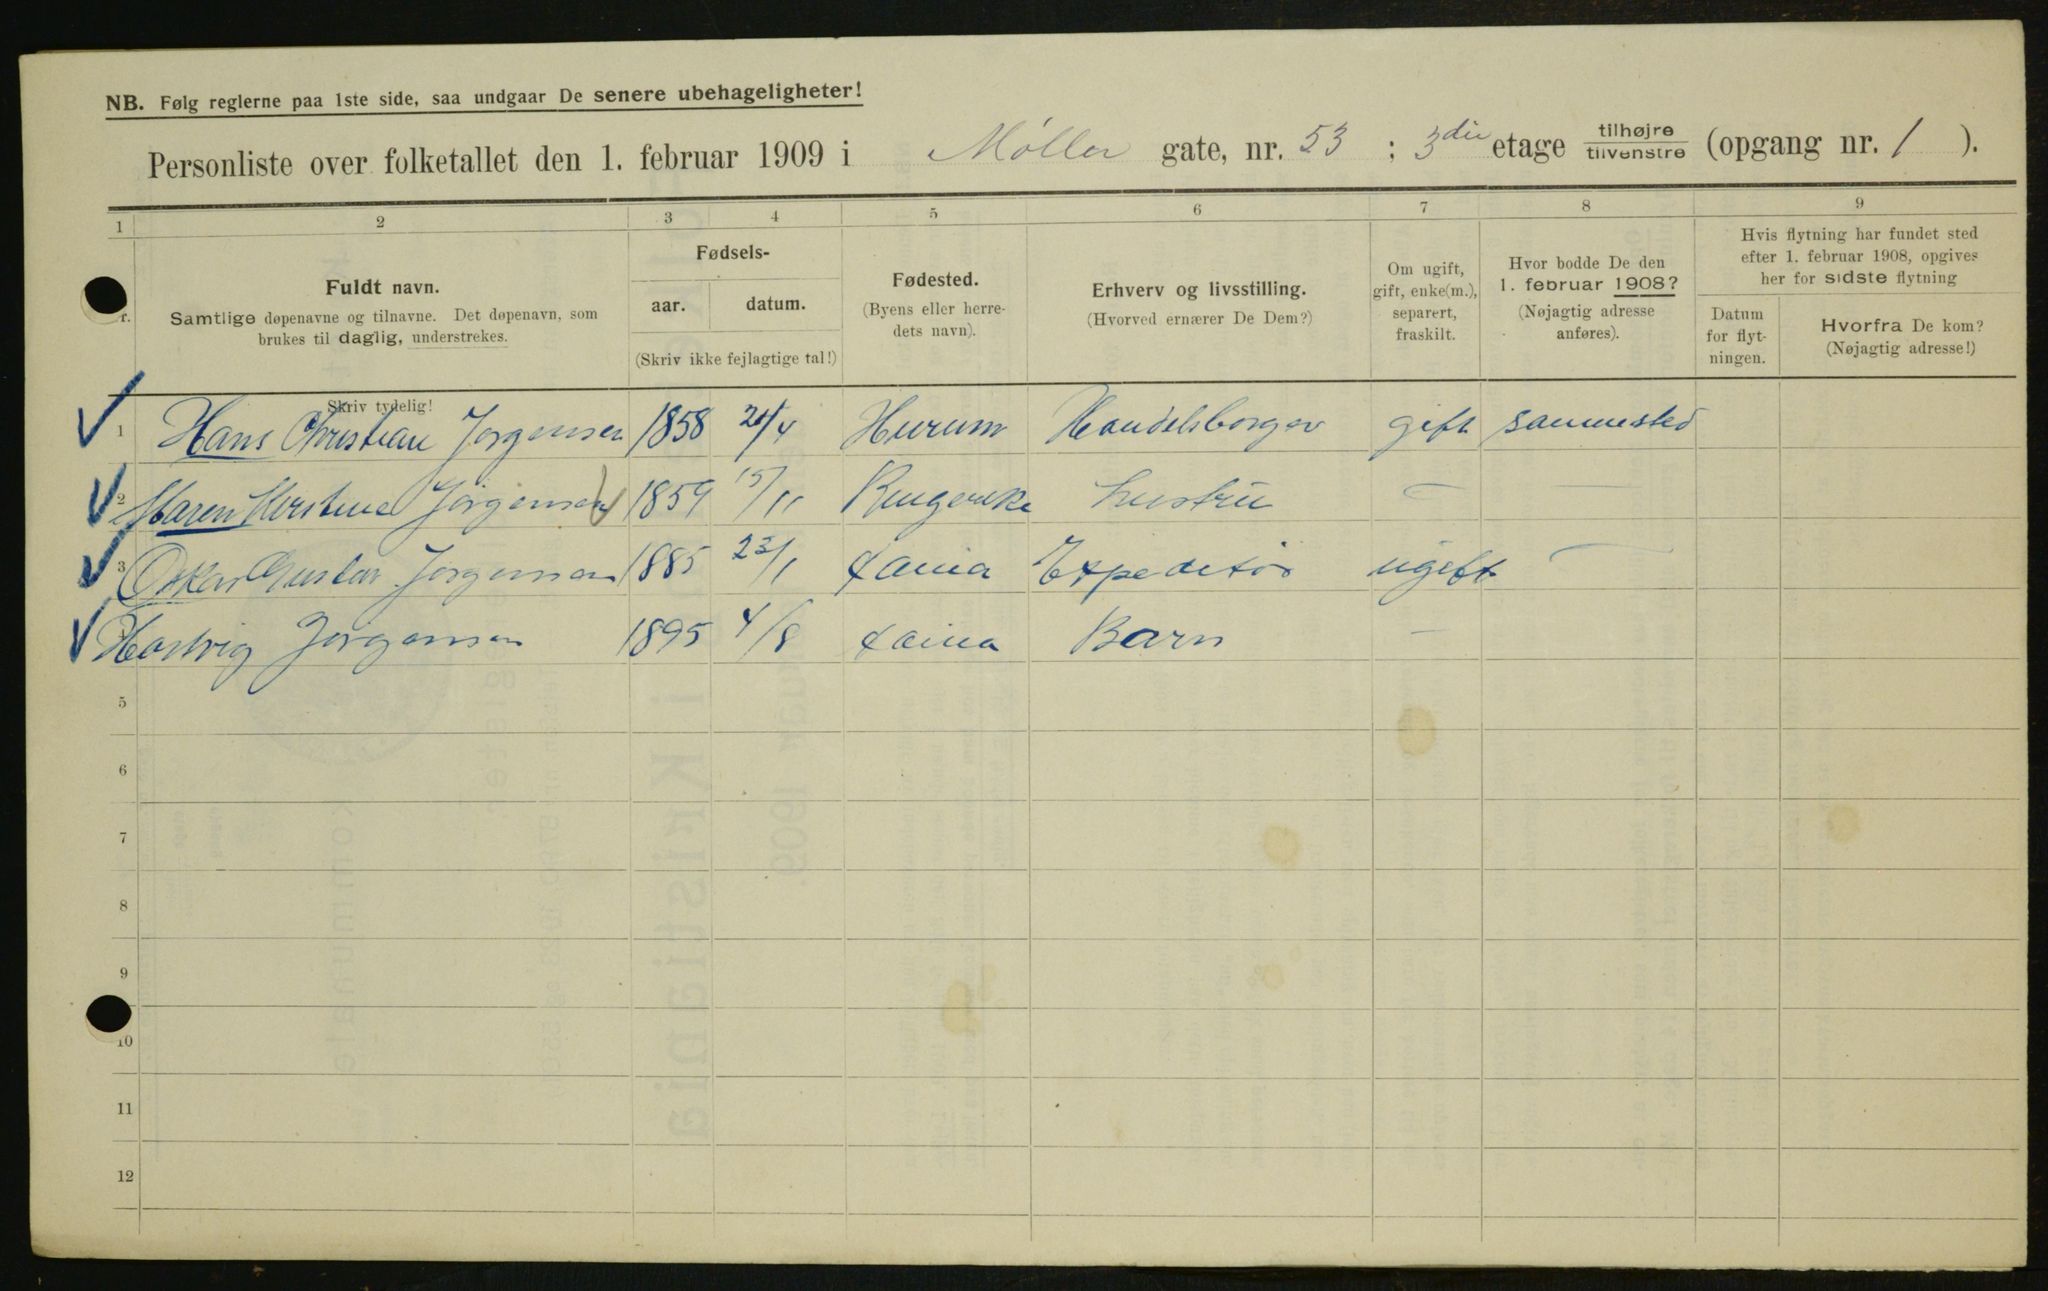 NB. Følg reglerne paa 1ste side, saa undgaar De senere ubehageligheter!
Personliste over folketallet den 1. februar 1909 i Møller gate, nr. 53 ; 3die etage tilhøjre / tilvenstre (opgang nr. 1 ).
1 2 3 4 5 6 7 8 9
Fuldt navn.
Samtlige døpenavne og tilnavne. Det døpenavn, som
brukes til daglig, understrekes.
Skriv tydelig!
Fødsels-
aar. datum.
(Skriv ikke fejlagtige tal!)
Fødested.
(Byens eller herre-
dets navn).
Erhverv og livsstilling.
(Hvorved ernærer De Dem?)
Om ugift,
gift, enke(m.),
separert,
fraskilt.
Hvor bodde De den
1. februar 1908?
(Nøjagtig adresse
anføres).
Hvis flytning har fundet sted
efter 1. februar 1908, opgives
her for sidste flytning
Datum
for flyt-
ningen.
Hvorfra De kom?
(Nøjagtig adresse!)
1 Hans Christian Jørgensen 1858 /4 Hurum Handelsborger gift sammested
2 Maren Kirstine Jørgensen 1859 15/11 Ringerike hustru — —
3 Oskar Gustav Jørgensen 1885 23/1 Xania Expeditør ugift —
Jørgensen 1895 4/8 Xania Barn —
5
6
7
8
9
10
11
12